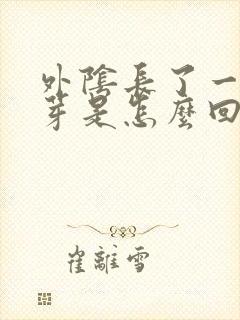 外陰長了一
芽是怎麼回
崔離雪